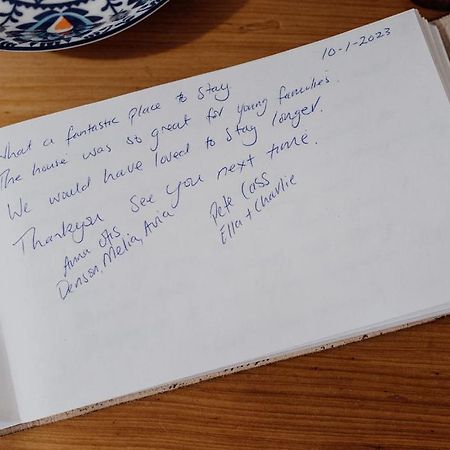 10-1-2023
What a fantastic place to stay
The house was so great for young families.
We would have loved to stay longer.
Thankyou see you next time.
Anna Otis
Denson, Melia, Avia
Pete Cass
Ella + Charlie